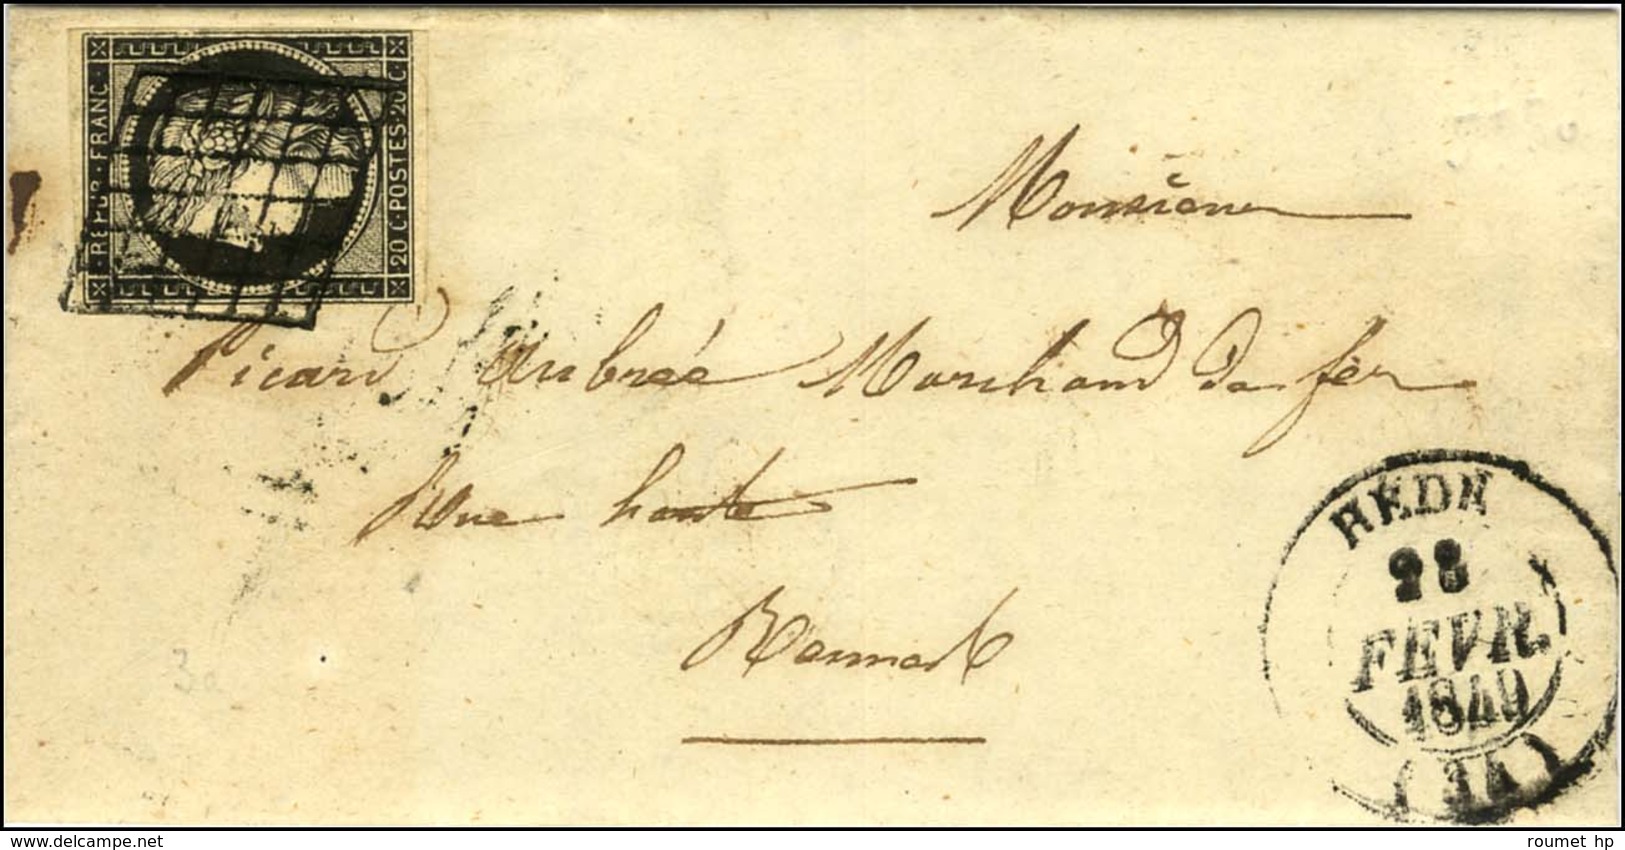 REPUB · FRANC ·
20 C · POSTES · 20 C ·
Monsieur
Picard Aubrée Marchand de fer
Rue haute
Rennes
REDN
28
FEVR.
1849
(34)
3a
roumet hp